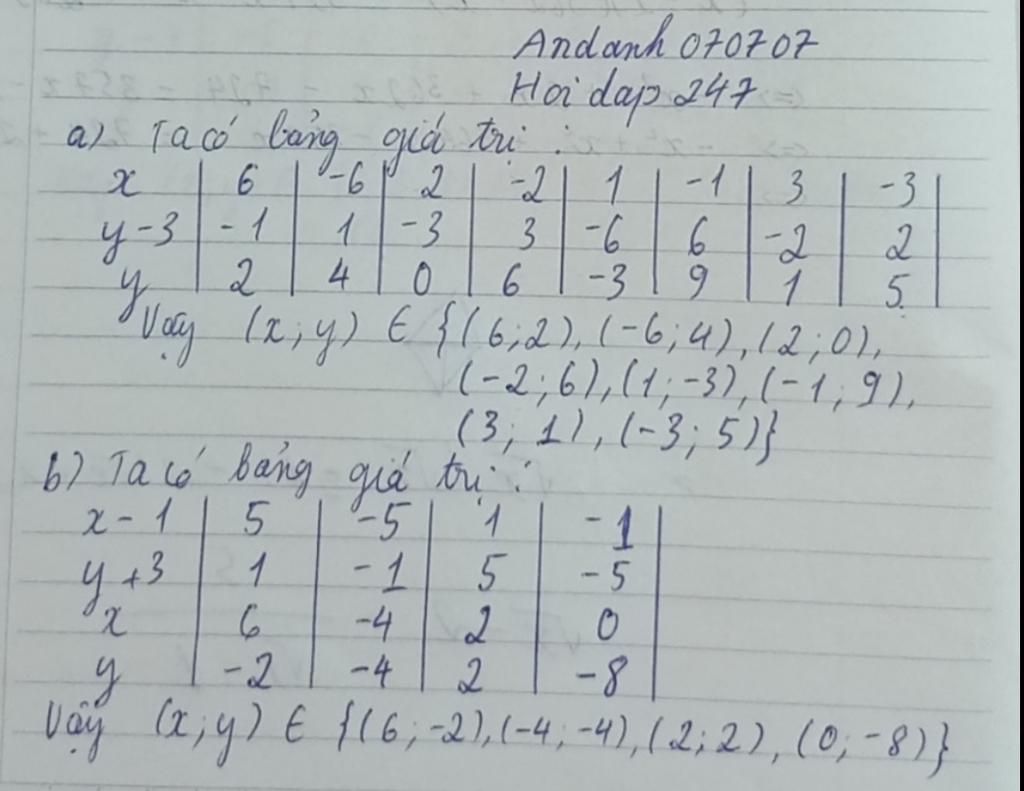 Andanh 070707
Hoi dap 247
a) Ta có bảng giá trị :
x | 6 | -6 | 2 | -2 | 1 | -1 | 3 | -3 |
y-3 | -1 | 1 | -3 | 3 | -6 | 6 | -2 | 2 |
y | 2 | 4 | 0 | 6 | -3 | 9 | 1 | 5 |
Vậy (x;y) ∈ {(6;2), (-6;4), (2;0),
(-2;6), (1;-3), (-1;9),
(3;1), (-3;5)}
b) Ta có bảng giá trị :
x-1 | 5 | -5 | 1 | -1 |
y+3 | 1 | -1 | 5 | -5 |
x | 6 | -4 | 2 | 0 |
y | -2 | -4 | 2 | -8 |
Vậy (x;y) ∈ {(6;-2), (-4;-4), (2;2), (0;-8)}